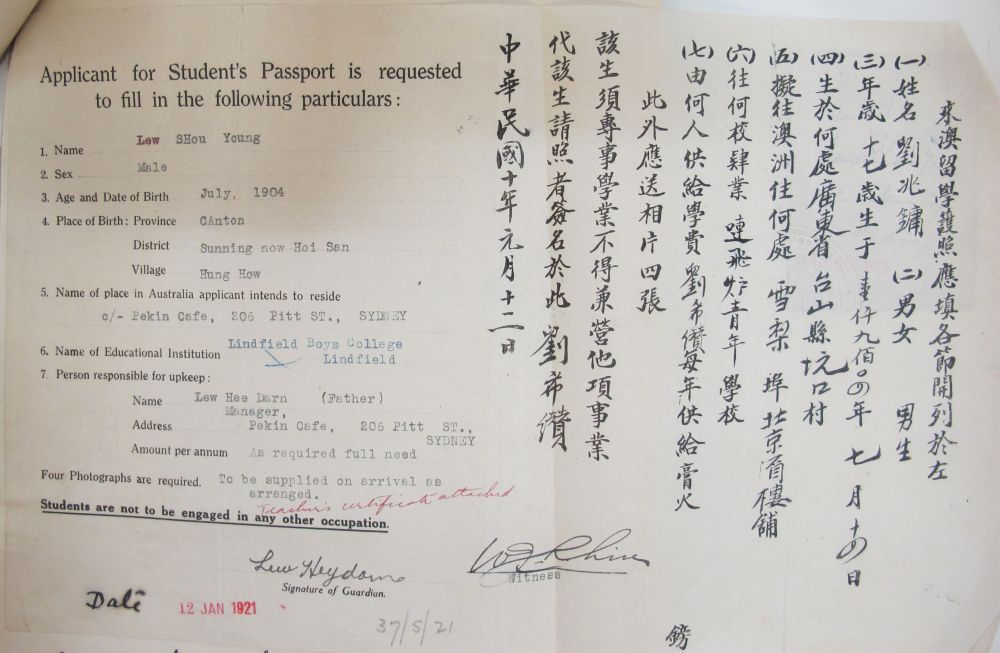 Applicant for Student's Passport is requested
to fill in the following particulars:
1. Name Lew SHou Young
2. Sex Male
3. Age and Date of Birth July, 1904
4. Place of Birth: Province CAnton
District Sunning now Hoi San
Village Hung How
5. Name of place in Australia applicant intends to reside
c/- Pekin Cafe, 206 Pitt ST., SYDNEY
6. Name of Educational Institution Lindfield Boys College
Lindfield
7. Person responsible for upkeep:
Name Lew Hee Darn (Father)
Manager,
Address Pekin Cafe, 206 Pitt ST.,
SYDNEY
Amount per annum As required full need
Four Photographs are required. To be supplied on arrival as
arranged.
Teacher's certificate attached
Students are not to be engaged in any other occupation.
Lew Heydarn
Signature of Guardian.
Witness
Date 12 JAN 1921
37/5/21
來澳留學護照應填各節開列於左
(一)姓名 劉兆鏞 (二)男女 男生
(三)年歲 十七歲生于 壹仟九佰〇四年 七月十四日
(四)生於何處廣東省 台山縣坑口村
(五)擬往澳洲住何處 雪梨 埠 北京酒樓舖
(六)往何校肄業 嗹飛炉青年 學校
(七)由何人供給學費 劉希儹每年供給膏火
此外應送相片四張
該生須專事學業不得兼營他項事業
代該生請照者簽名於此 劉希儹
中華民國十年元月十二日